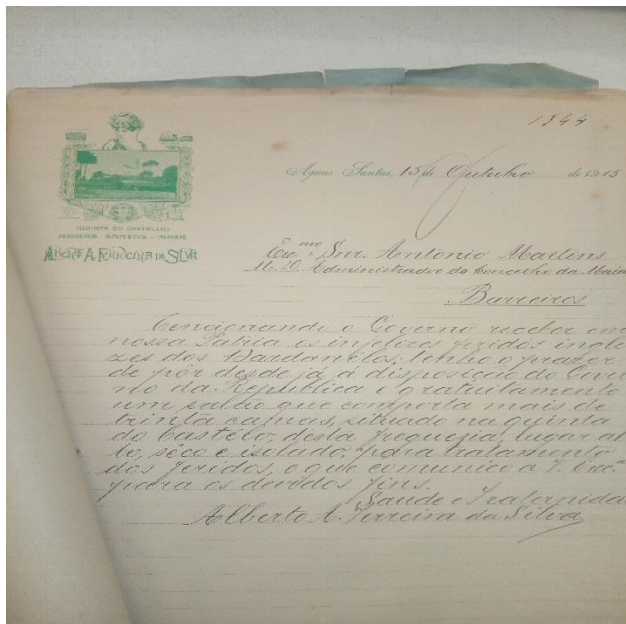 1344
(QUINTA DO CASTELLO)
AGUAS SANTAS — MAIA
ALBERTO A. FERREIRA DA SILVA
Aguas Santas, 15 de Outubro de 1915
Exmo. Snr. Antonio Martins
M. D. Administrador do Concelho da Maia
Barreiros
Tencionando o Governo receber em
nossa Patria os infelizes feridos ingle
zes dos Dardanelos, tenho o prazer
de pôr desde já á disposição do Gover
no da Republica e gratuitamente
um salão que comporta mais de
trinta camas, situado na quinta
do Castelo, desta freguesia, lugar al
to, sêco e isolado, para tratamento
dos feridos, o que comunico a V. Exca.
para os devidos fins.
Saude e Fraternida
Alberto A. Ferreira da Silva